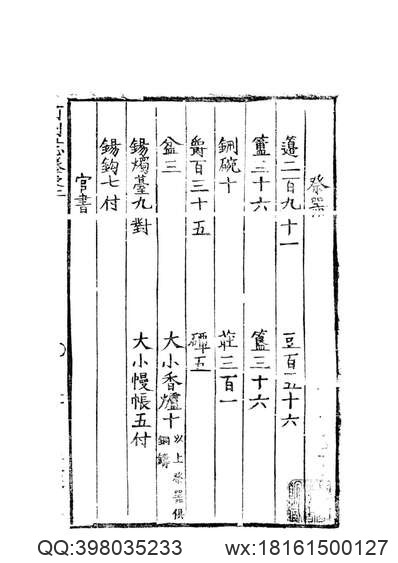 祭器
籩二百九十一 豆百五十六
簠三十六 簋三十六
鉶碗十 莊三百一
爵百三十五 磾五
盆三 大小香爐十以上祭器俱銅鑄
錫燭臺九對 大小幔帳五付
錫鈎七付
官書
QQ:398035233 wx:18161500127